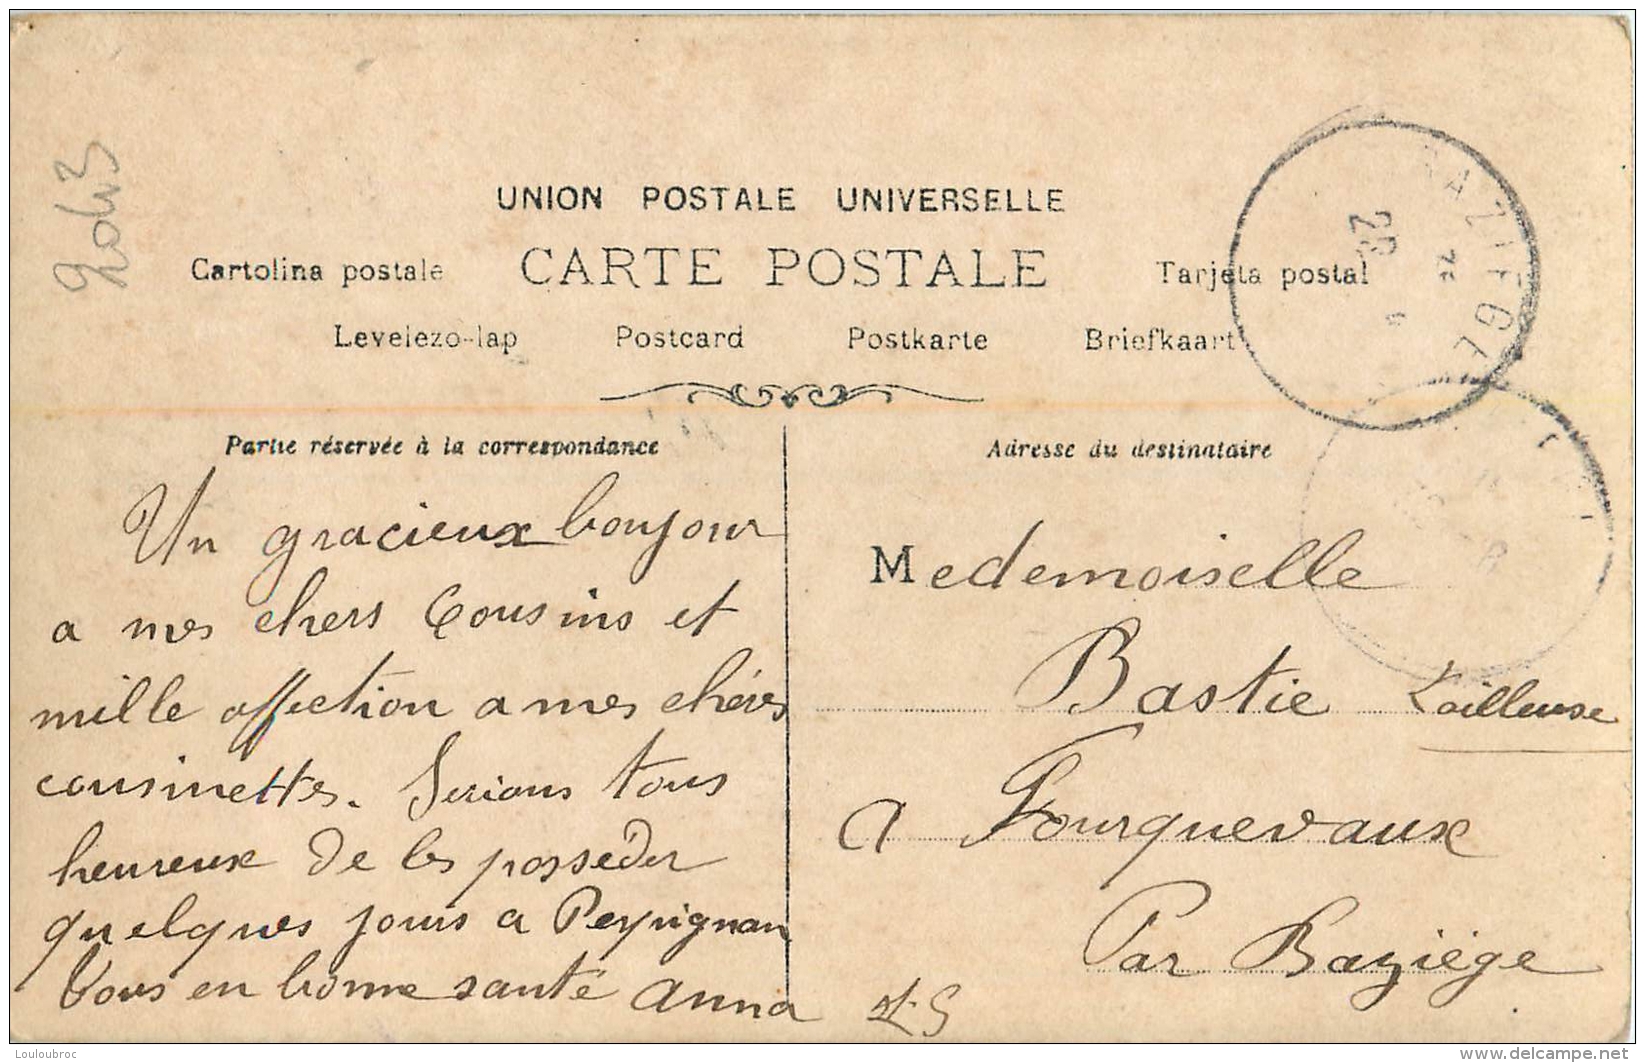 UNION POSTALE UNIVERSELLE
Cartolina postale CARTE POSTALE Tarjeta postal
Levelezo-lap Postcard Postkarte Briefkaart
BAZIEGE
Partie réservée à la correspondance
Un gracieux bonjour
a mes chers Cousins et
mille affection a mes chéres
cousinettes. Serions tous
heureux de les posseder
quelques jours a Perpignan
Tous en bonne santé Anna
Adresse du destinataire
Medemoiselle
Bastie tailleuse
a Fourquevaux
Par Baziége
Louloubroc
delcampe.net